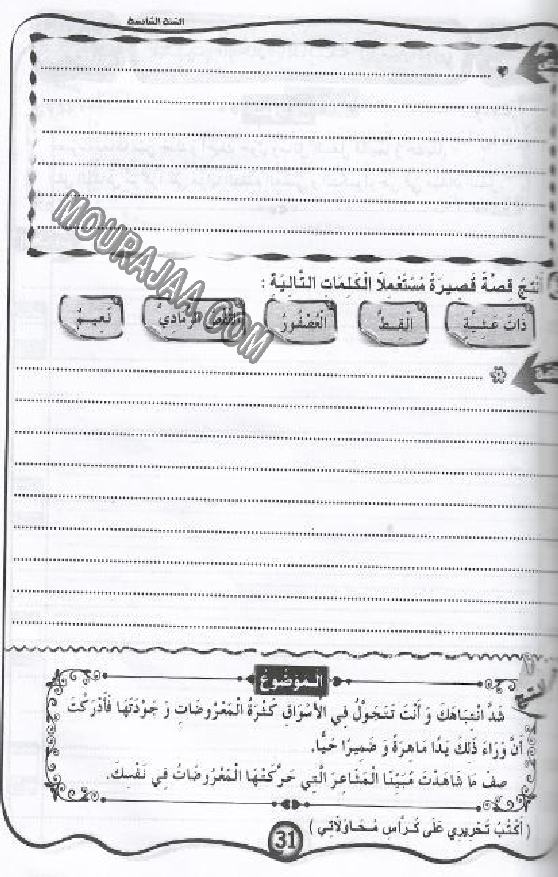 السنة الخامسة
أُنْتِجُ قِصَّةً قَصِيرَةً مُسْتَعْمِلًا الْكَلِمَاتِ التَّالِيَةَ :
ذَاتَ عَشِيَّةٍ
الْقِطُّ
الْعُصْفُورُ
الْقِطُّ الرَّمَادِيُّ
نَعِيمٌ
MOURAJAA.COM
الْمَوْضُوعُ
شَدَّ انْتِبَاهَكَ وَ أَنْتَ تَتَجَوَّلُ فِي الأَسْوَاقِ كَثْرَةُ الْمَعْرُوضَاتِ وَ جَوْدَتُهَا فَأَدْرَكْتَ
أَنَّ وَرَاءَ ذَلِكَ يَدًا مَاهِرَةً وَ ضَمِيرًا حَيًّا.
صِفْ مَا شَاهَدْتَ مُبَيِّنًا الْمَشَاعِرَ الَّتِي حَرَّكَتْهَا الْمَعْرُوضَاتُ فِي نَفْسِكَ.
( أَكْتُبُ تَحْرِيرِي عَلَى كُرَّاسِ مُحَاوَلَاتِي )
31